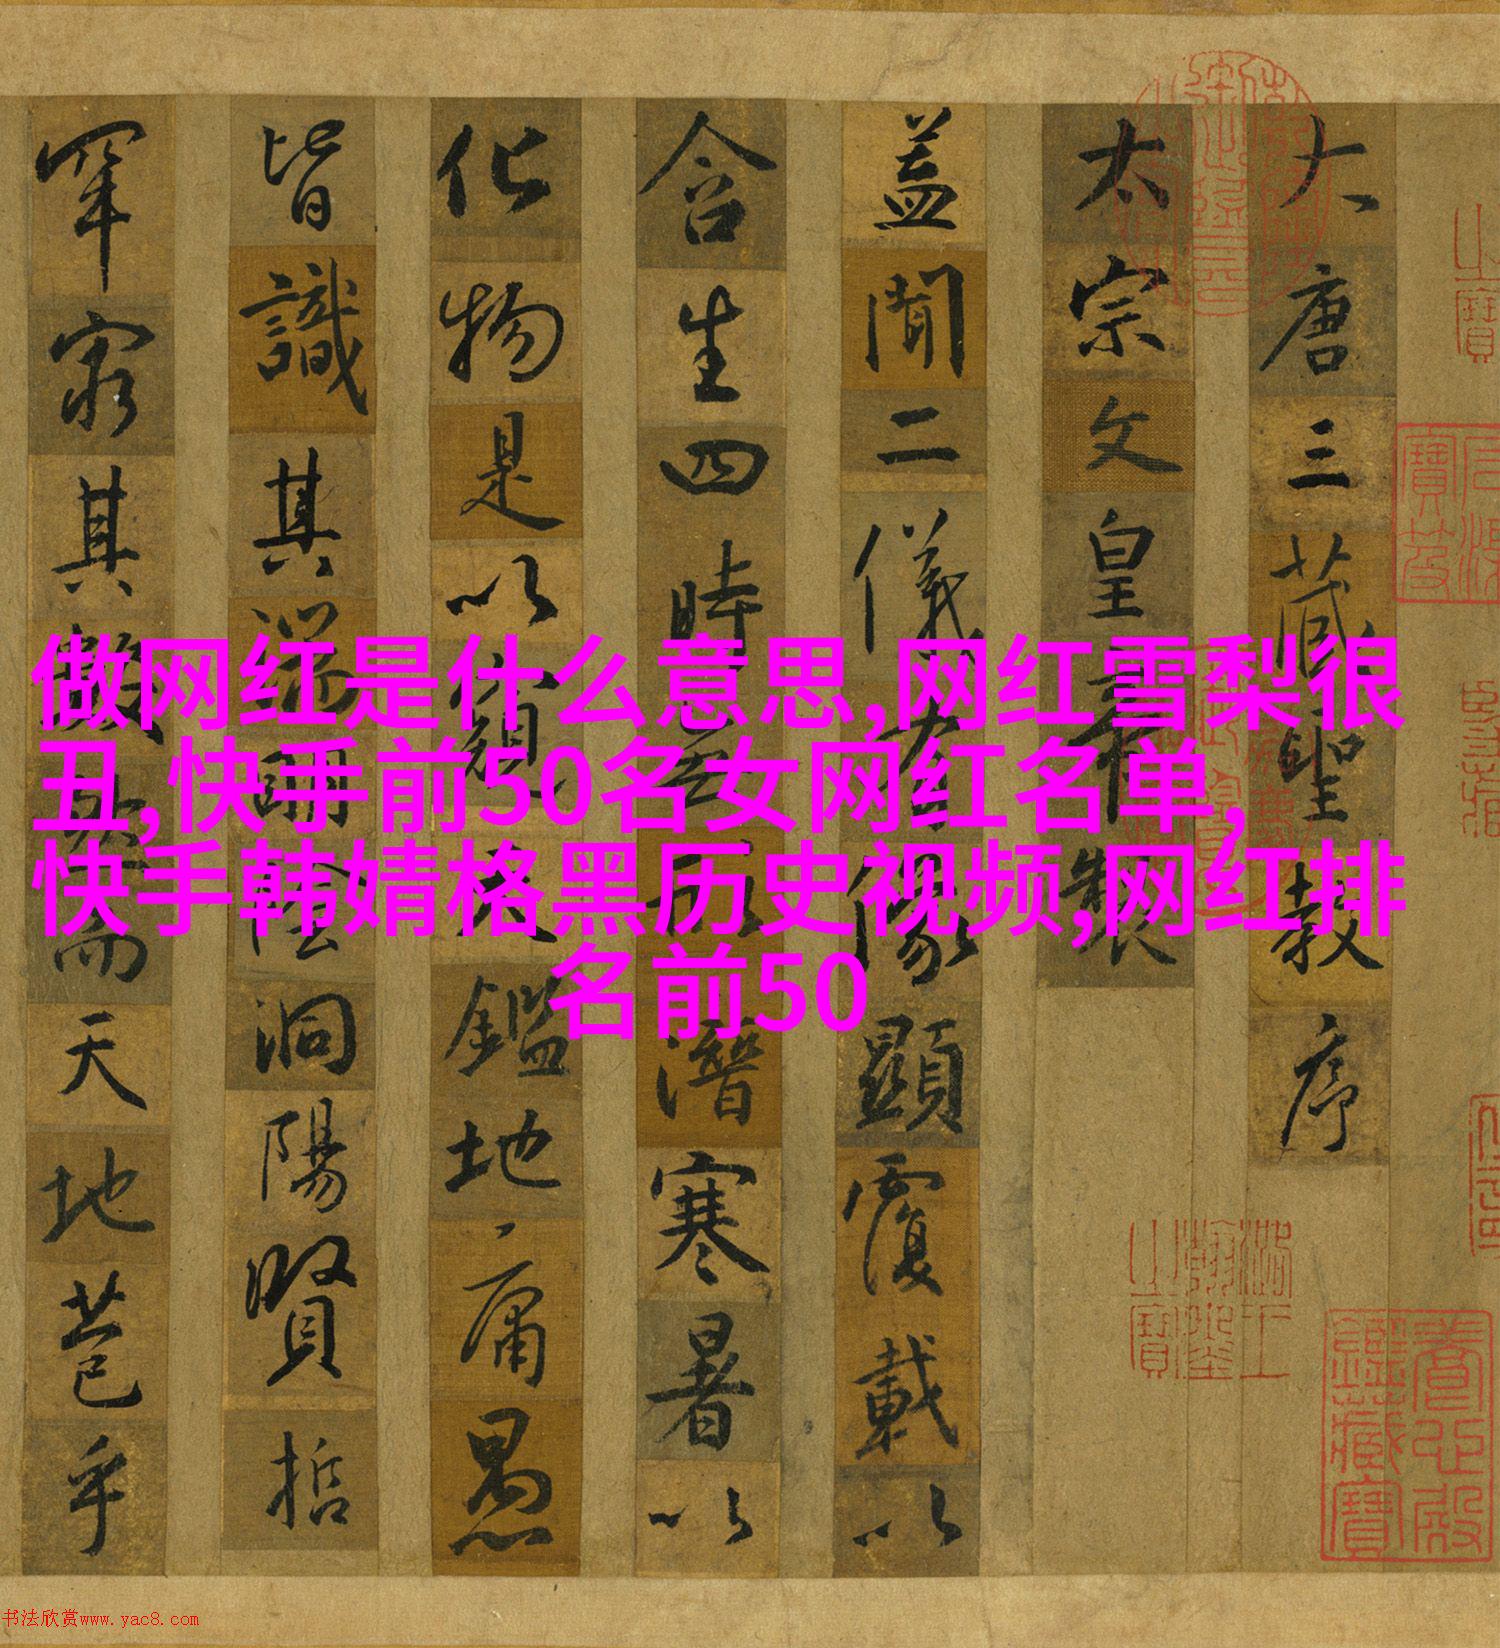 大唐三藏聖教序
太宗文皇帝製
蓋聞二儀有像顯覆載以
含生四時無形潛寒暑以
化物是以窺天鑑地庸愚
皆識其端明陰洞陽賢哲
罕窮其數然而天地苞乎
做网红是什么意思,网红雪梨很
丑,快手前50名女网红名单,
快手韩婧格黑历史视频,网红排
名前50
養心殿鑑藏寶
书法欣赏www.yac8.com